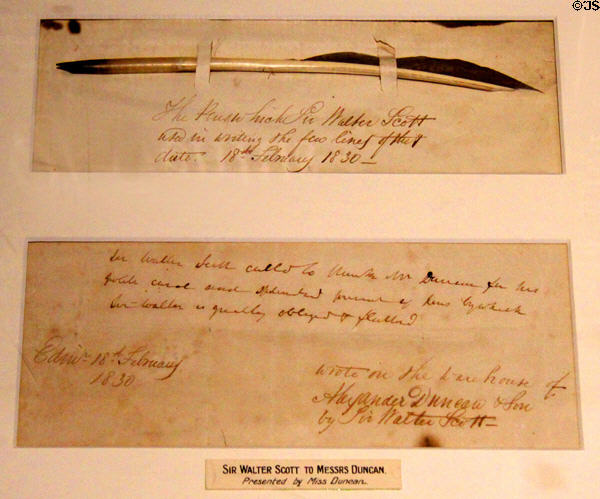 ©JS
The Pen which Sir Walter Scott
used in writing the few lines of that
date. 18th February 1830
Sir Walter Scott called to thank Mr Duncan for his
polite and splendid present of pens by which
Sir Walter is greatly obliged & flattered
Edinr 18th February
1830
wrote in the Warehouse of
Alexander Duncan & Son
by Sir Walter Scott
SIR WALTER SCOTT TO MESSRS DUNCAN.
Presented by Miss Duncan.